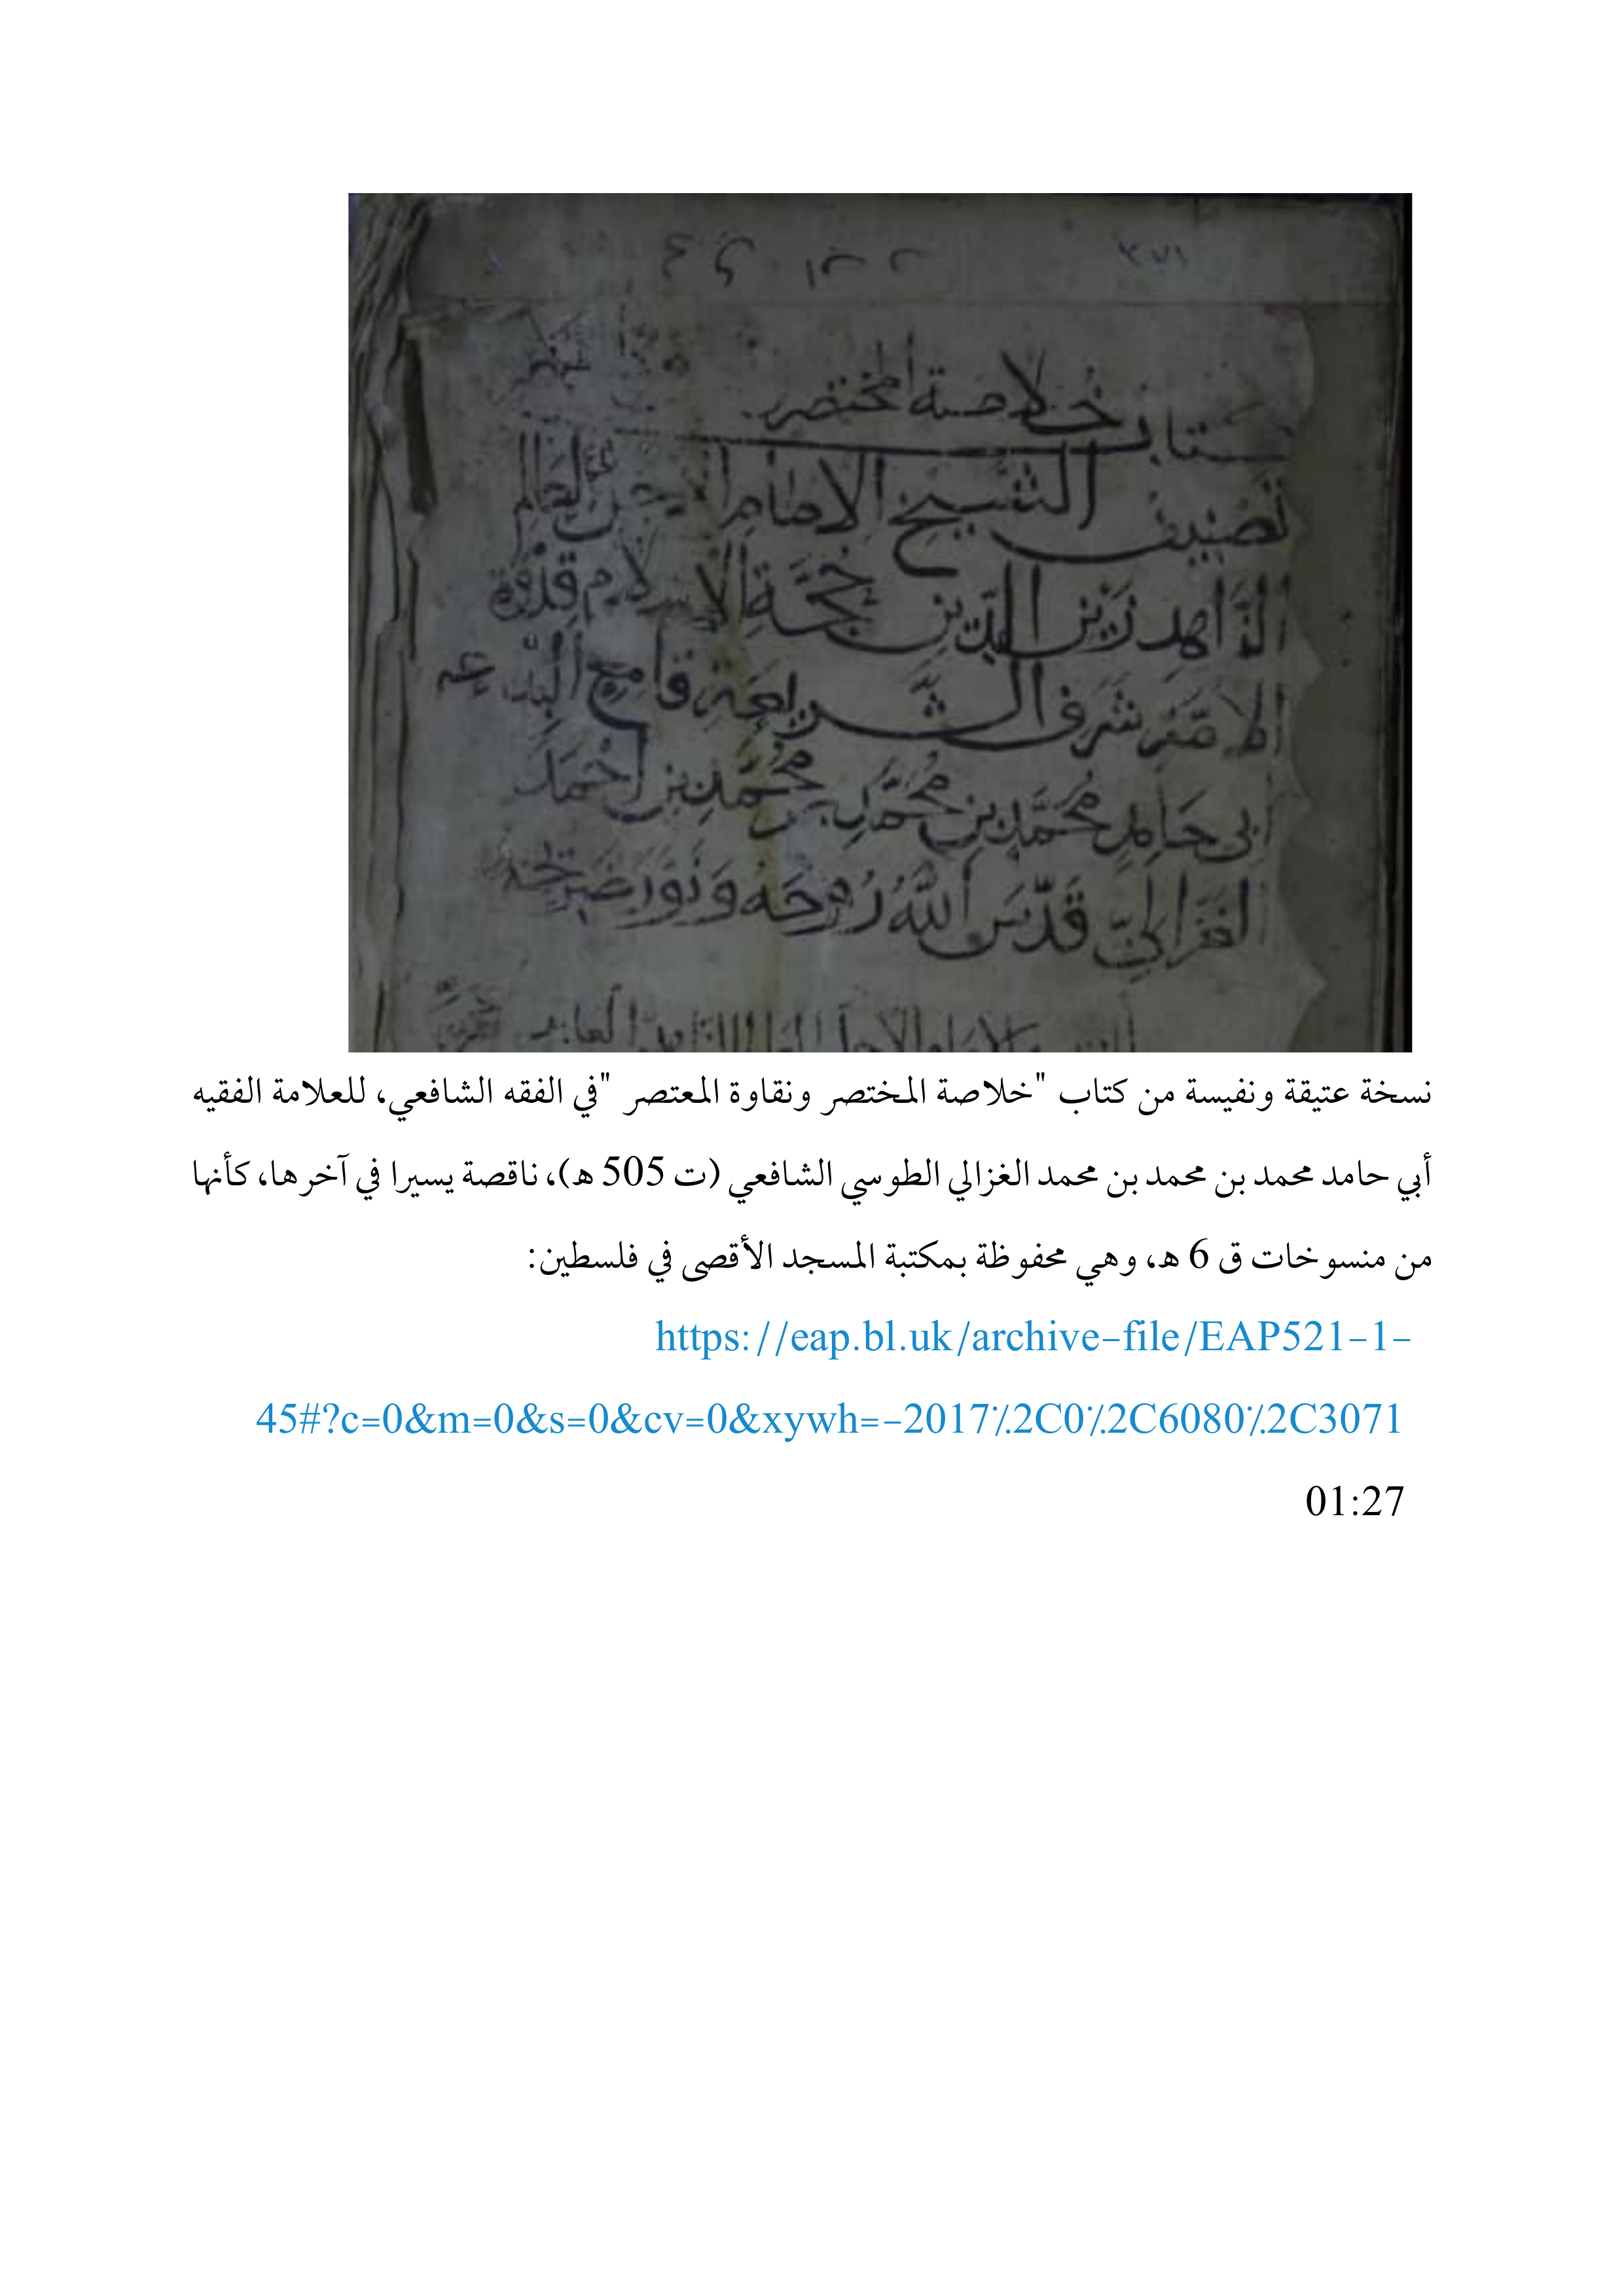 خلاصة المختصر
تصنيف الشيخ الامام
الزاهد زين الدين حجة الإسلام قدوة
الامة شرف الشريعة قامع البدعة
ابي حامد محمد بن محمد بن محمد بن احمد
الغزالي قدس الله روحه ونور ضريحه
نسخة عتيقة ونفيسة من كتاب "خلاصة المختصر ونقاوة المعتصر "في الفقه الشافعي، للعلامة الفقيه
أبي حامد محمد بن محمد بن محمد الغزالي الطوسي الشافعي (ت 505 هـ)، ناقصة يسيرا في آخرها، كأنها
من منسوخات ق 6 هـ، وهي محفوظة بمكتبة المسجد الأقصى في فلسطين:
https://eap.bl.uk/archive-file/EAP521-1-
45#?c=0&m=0&s=0&cv=0&xywh=-2017%2C0%2C6080%2C3071
01:27